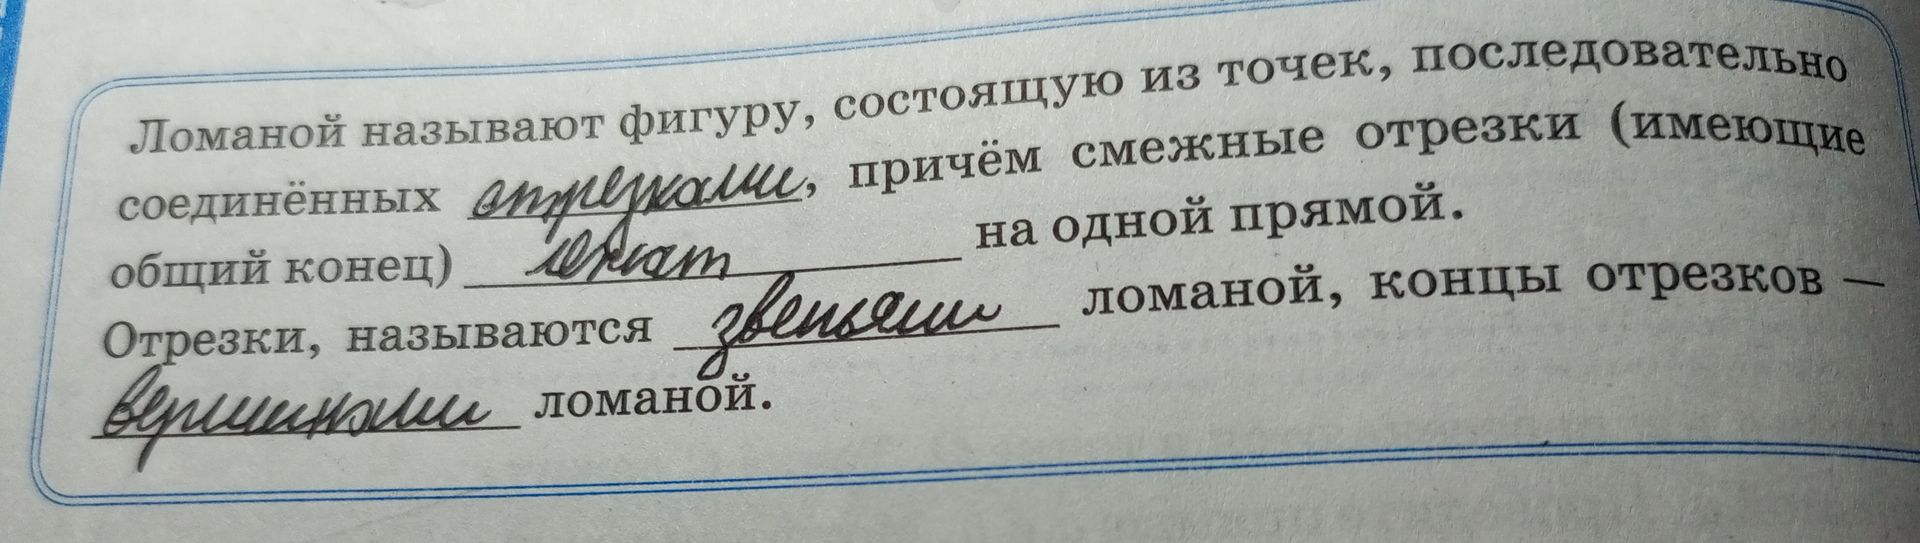 Ломаной называют фигуру, состоящую из точек, последовательно
соединённых отрезками, причём смежные отрезки (имеющие
общий конец) лежат на одной прямой.
Отрезки, называются звеньями ломаной, концы отрезков —
вершинами ломаной.